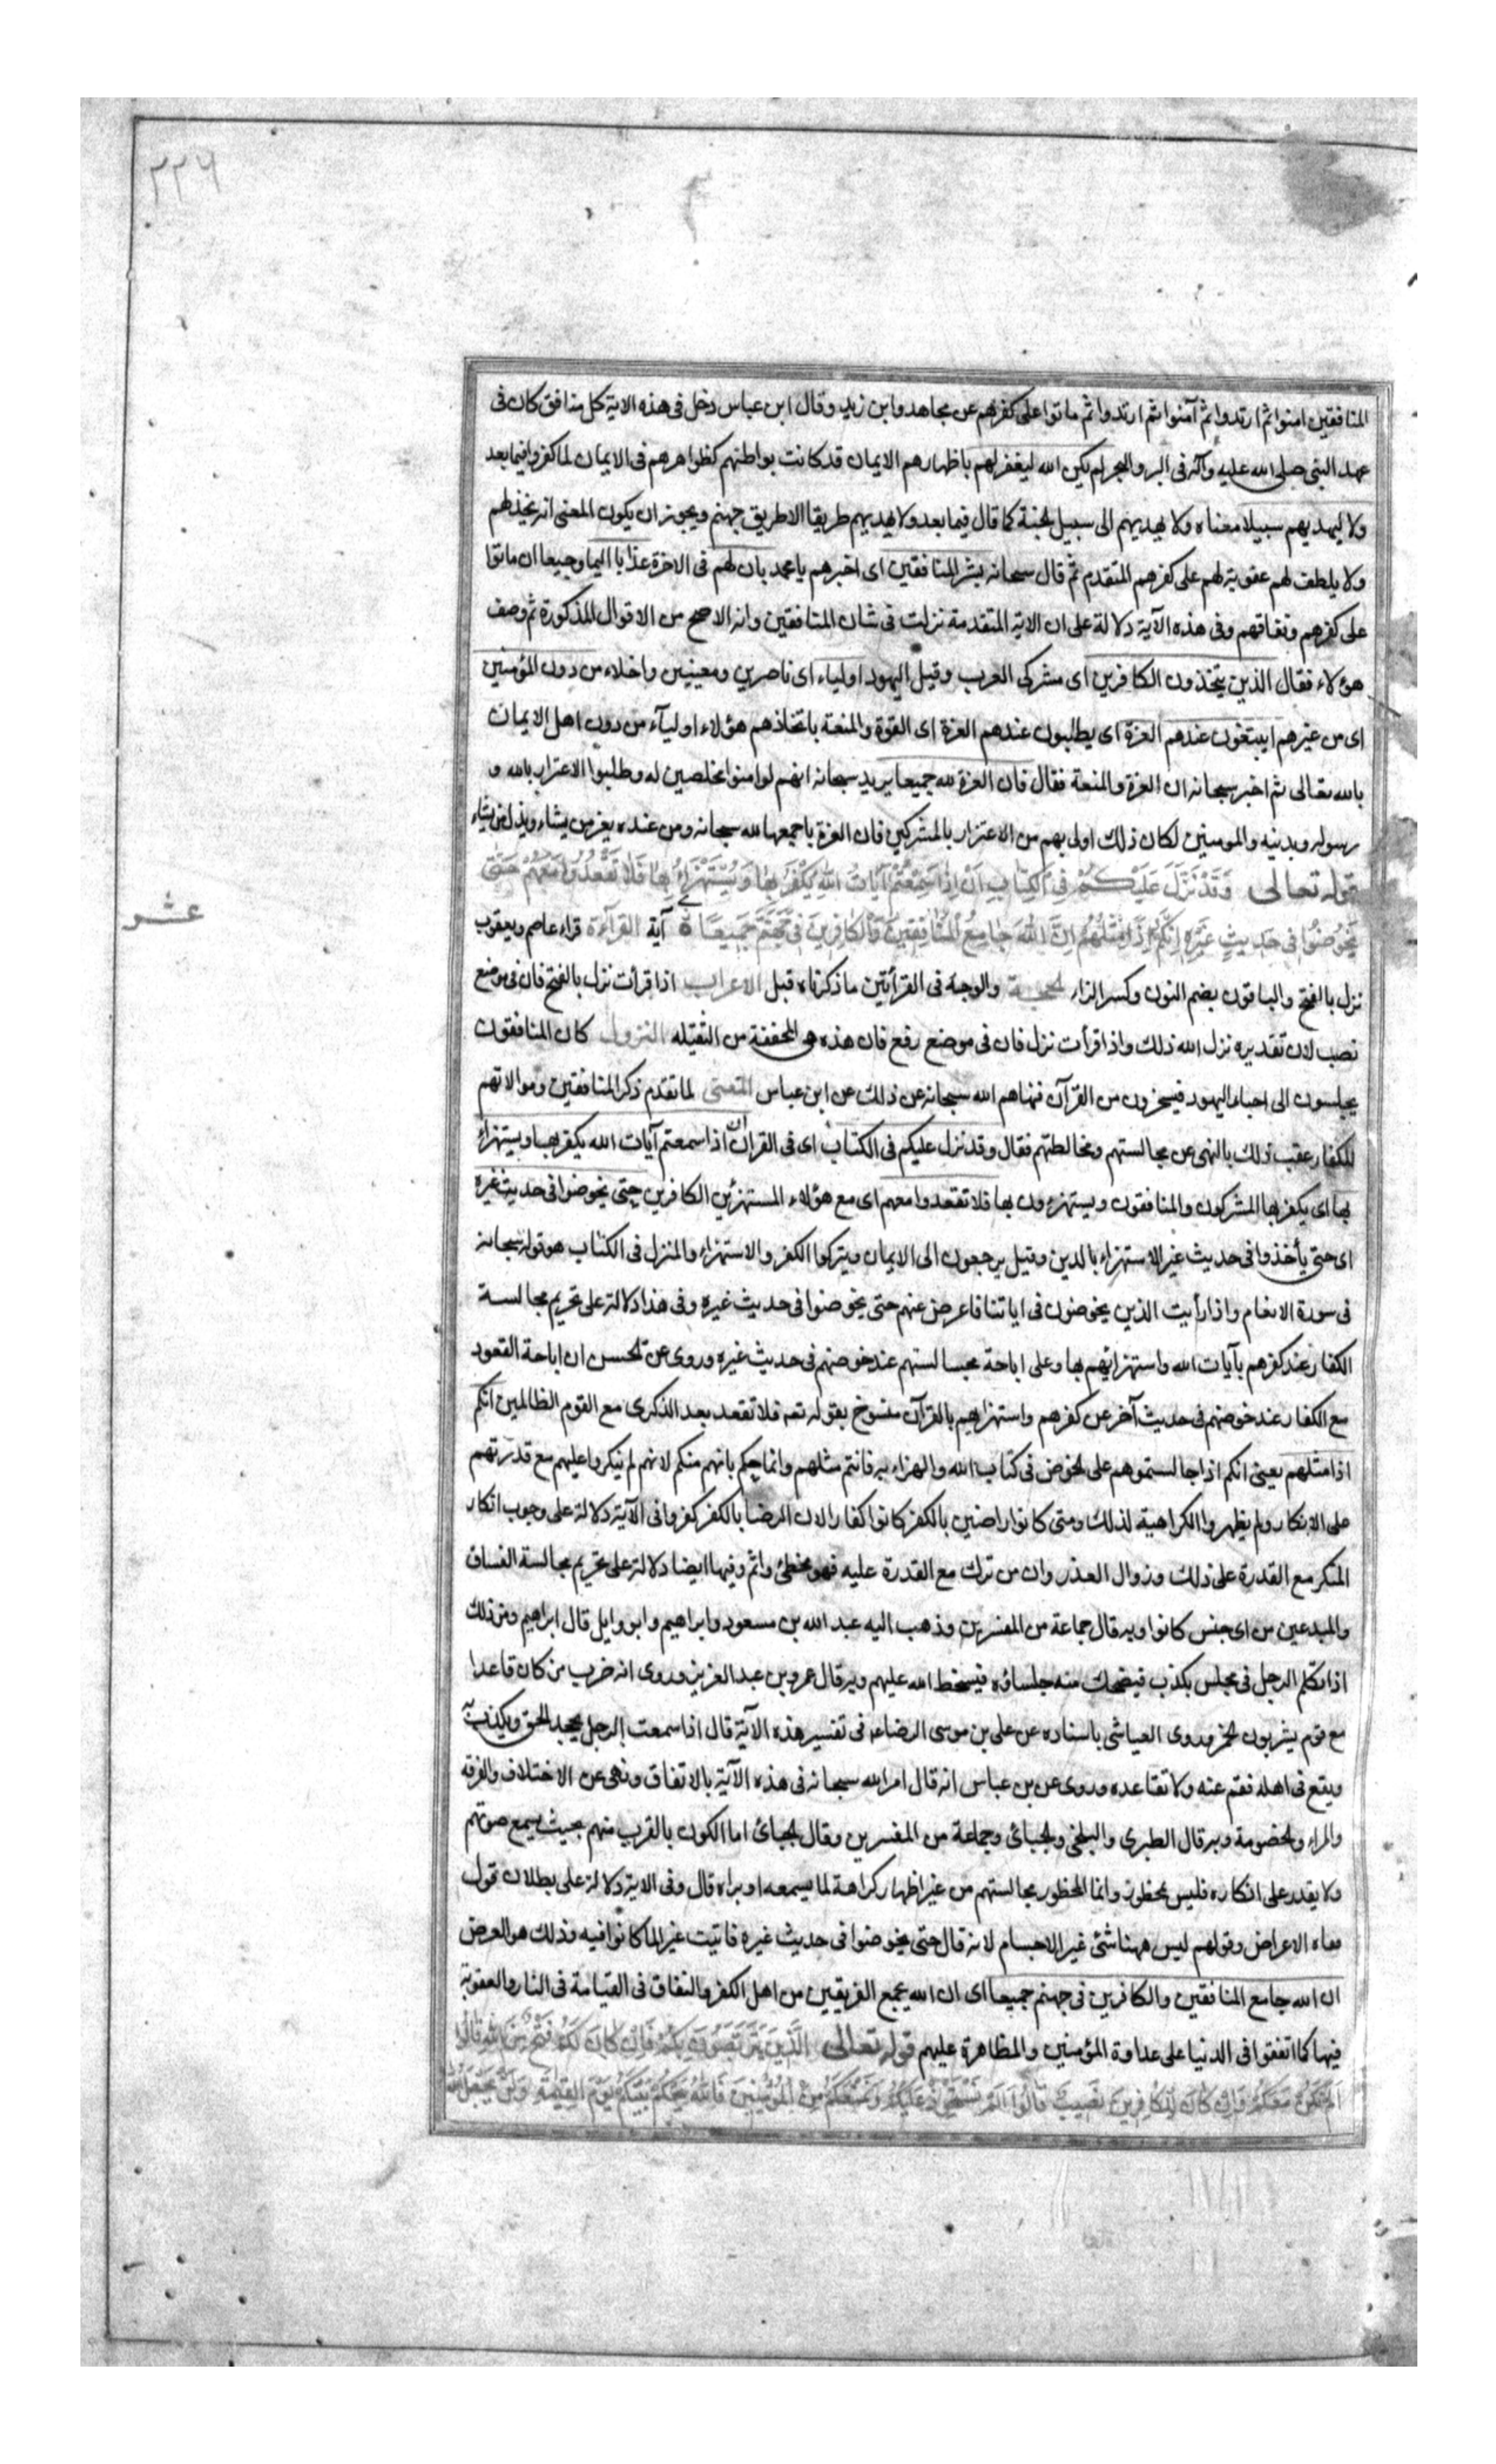 ٢٢٦
المنافقين امنوا ثم ارتدوا ثم آمنوا ثم ارتدوا ثم ماتوا على كفرهم عن مجاهد وابن زيد وقال ابن عباس دخل فى هذه الاية كل منافق كان فى
عهد النبى صلى الله عليه وآله فى البر والبحر لم يكن الله ليغفر لهم باظهارهم الايمان قد كانت بواطنهم كظواهرهم فى الايمان لما كفروا فيما بعد
ولا ليهديهم سبيلا معناه ولا يهديهم الى سبيل الجنة كما قال فيما بعد ولا ليهديهم طريقا الا طريق جهنم ويجوز ان يكون المعنى انه يخذلهم
ولا يلطف لهم عقوبة لهم على كفرهم المتقدم ثم قال سبحانه بشر المنافقين اى اخبرهم يا محمد بان لهم فى الاخرة عذابا اليما وجيعا ان ماتوا
على كفرهم ونفاقهم وفى هذه الآية دلالة على ان الاية المتقدمة نزلت فى شان المنافقين وانه الاصح من الاقوال المذكورة ثم وصف
هؤلاء فقال الذين يتخذون الكافرين اى مشركى العرب وقيل اليهود اولياء اى ناصرين ومعينين واخلاء من دون المؤمنين
اى من غيرهم ايبتغون عندهم العزة اى يطلبون عندهم العزة اى القوة والمنعة باتخاذهم هؤلاء اوليآء من دون اهل الايمان
بالله تعالى ثم اخبر سبحانه ان العزة والمنعة فقال فان العزة لله جميعا يريد سبحانه انهم لو امنوا مخلصين له وطلبوا الاعتزاز بالله و
رسوله وبدينه والمومنين لكان ذلك اولى بهم من الاعتزاز بالمشركين فان العزة باجمعها لله سبحانه ومن عنده يعز من يشاء ويذل من يشاء
قوله تعالى وَقَدْ نَزَّلَ عَلَيْكُمْ فِى الْكِتَابِ اَنْ اِذَا سَمِعْتُمْ آيَاتِ اللهِ يُكْفَرُ بِهَا وَيُسْتَهْزَأُ بِهَا فَلَا تَقْعُدُوا مَعَهُمْ حَتّٰى
يَخُوضُوا فِى حَدِيثٍ غَيْرِهِ اِنَّكُمْ اِذًا مِثْلُهُمْ اِنَّ اللهَ جَامِعُ الْمُنَافِقِينَ وَالْكَافِرِينَ فِى جَهَنَّمَ جَمِيعًا آية القرآءة قراء عاصم ويعقوب
عشر
نزل بالفتح والباقون بضم النون وكسر الزاء الحجة والوجه فى القرأتين ما ذكرناه قبل الاعراب اذا قرأت نزل بالفتح فان فى موضع
نصب لان تقديره نزل الله ذلك واذا قرأت نزل فان فى موضع رفع فان هذه هى المخففة من الثقيله النزول كان المنافقون
يجلسون الى احبار اليهود فيسخرون من القرآن فنهاهم الله سبحانه عن ذلك عن ابن عباس المعنى لما تقدم ذكر المنافقين وموالاتهم
للكفار عقب ذلك بالنهى عن مجالستهم ومخالطتهم فقال وقد نزل عليكم فى الكتاب اى فى القران ان اذا سمعتم آيات الله يكفر بها ويستهزاء
بها اى يكفر بها المشركون والمنافقون ويستهزءون بها فلا تقعدوا معهم اى مع هؤلاء المستهزئين الكافرين حتى يخوضوا فى حديث غيره
اى حتى يأخذوا فى حديث غير الاستهزاء بالدين وقيل يرجعون الى الايمان ويتركوا الكفر والاستهزاء والمنزل فى الكتاب هو قوله سبحانه
فى سورة الانعام واذا رأيت الذين يخوضون فى اياتنا فاعرض عنهم حتى يخوضوا فى حديث غيره وفى هذا دلالة على تحريم مجالسة
الكفار عند كفرهم بآيات الله واستهزائهم بها وعلى اباحة مجالستهم عند خوضهم فى حديث غيره وروى عن الحسن ان اباحة القعود
مع الكفار عند خوضهم فى حديث آخر عن كفرهم واستهزايهم بالقرآن منسوخ بقوله تعه فلا تقعد بعد الذكرى مع القوم الظالمين انكم
اذا مثلهم يعنى انكم اذا جالستموهم على الخوض فى كتاب الله والهزاء به فانتم مثلهم وانما حكم بانهم منكم لانهم لم ينكروا عليهم مع قدرتهم
على الانكار ولم يظهروا الكراهية لذلك ومتى كانوا راضين بالكفر كانوا كفارا لان الرضا بالكفر كفر وفى الآية دلالة على وجوب انكار
المنكر مع القدرة على ذلك وزوال العذر وان من ترك مع القدرة عليه فهو مخطئ واثم وفيها ايضا دلالة على تحريم مجالسة الفساق
والمبدعين من اى جنس كانوا وبه قال جماعة من المفسرين وذهب اليه عبد الله بن مسعود وابراهيم وابو وايل قال ابراهيم ومن ذلك
اذا تكلم الرجل فى مجلس بكذب فيضحك منه جلساؤه فيسخط الله عليهم وبه قال عمر وبن عبد العزيز وروى انه ضرب من كان قاعدا
مع قوم يشربون الخمر وروى العياشى باسناده عن على بن موسى الرضاء فى تفسير هذه الآية قال اذا سمعت الرجل يجحد الحق ويكذب به
ويقع فى اهله فقم عنه ولا تقاعده وروى عن بن عباس انه قال امر الله سبحانه فى هذه الآية بالاتفاق ونهى عن الاختلاف والفرقه
والمراء والخصومة وبه قال الطبرى والبلخى والجبائى وجماعة من المفسرين وقال الجبائى اما الكون بالقرب منهم بحيث يسمع صوتهم
ولا يقدر على انكاره فليس بمحظور وانما المحظور مجالستهم من غير اظهار كراهة لما يسمعه او يراه قال وفى الاية دلالة على بطلان قول
نفاة الاعراض وقولهم ليس ههنا شئ غير الاجسام لانه قال حتى يخوضوا فى حديث غيره فاتيت غير الما كانوا فيه وذلك هو العرض
ان الله جامع المنافقين والكافرين فى جهنم جميعا اى ان الله يجمع الفريقين من اهل الكفر والنفاق فى القيامة فى النار والعقوبة
فيها كما اتفقوا فى الدنيا على عداوة المؤمنين والمظاهرة عليهم قوله تعالى الَّذِينَ يَتَرَبَّصُونَ بِكُمْ فَاِنْ كَانَ لَكُمْ فَتْحٌ مِنَ اللهِ قَالُوا
اَلَمْ نَكُنْ مَعَكُمْ وَاِنْ كَانَ لِلْكَافِرِينَ نَصِيبٌ قَالُوا اَلَمْ نَسْتَحْوِذْ عَلَيْكُمْ وَنَمْنَعْكُمْ مِنَ الْمُؤْمِنِينَ فَاللهُ يَحْكُمُ بَيْنَكُمْ يَوْمَ الْقِيٰمَةِ وَلَنْ يَجْعَلَ اللهُ